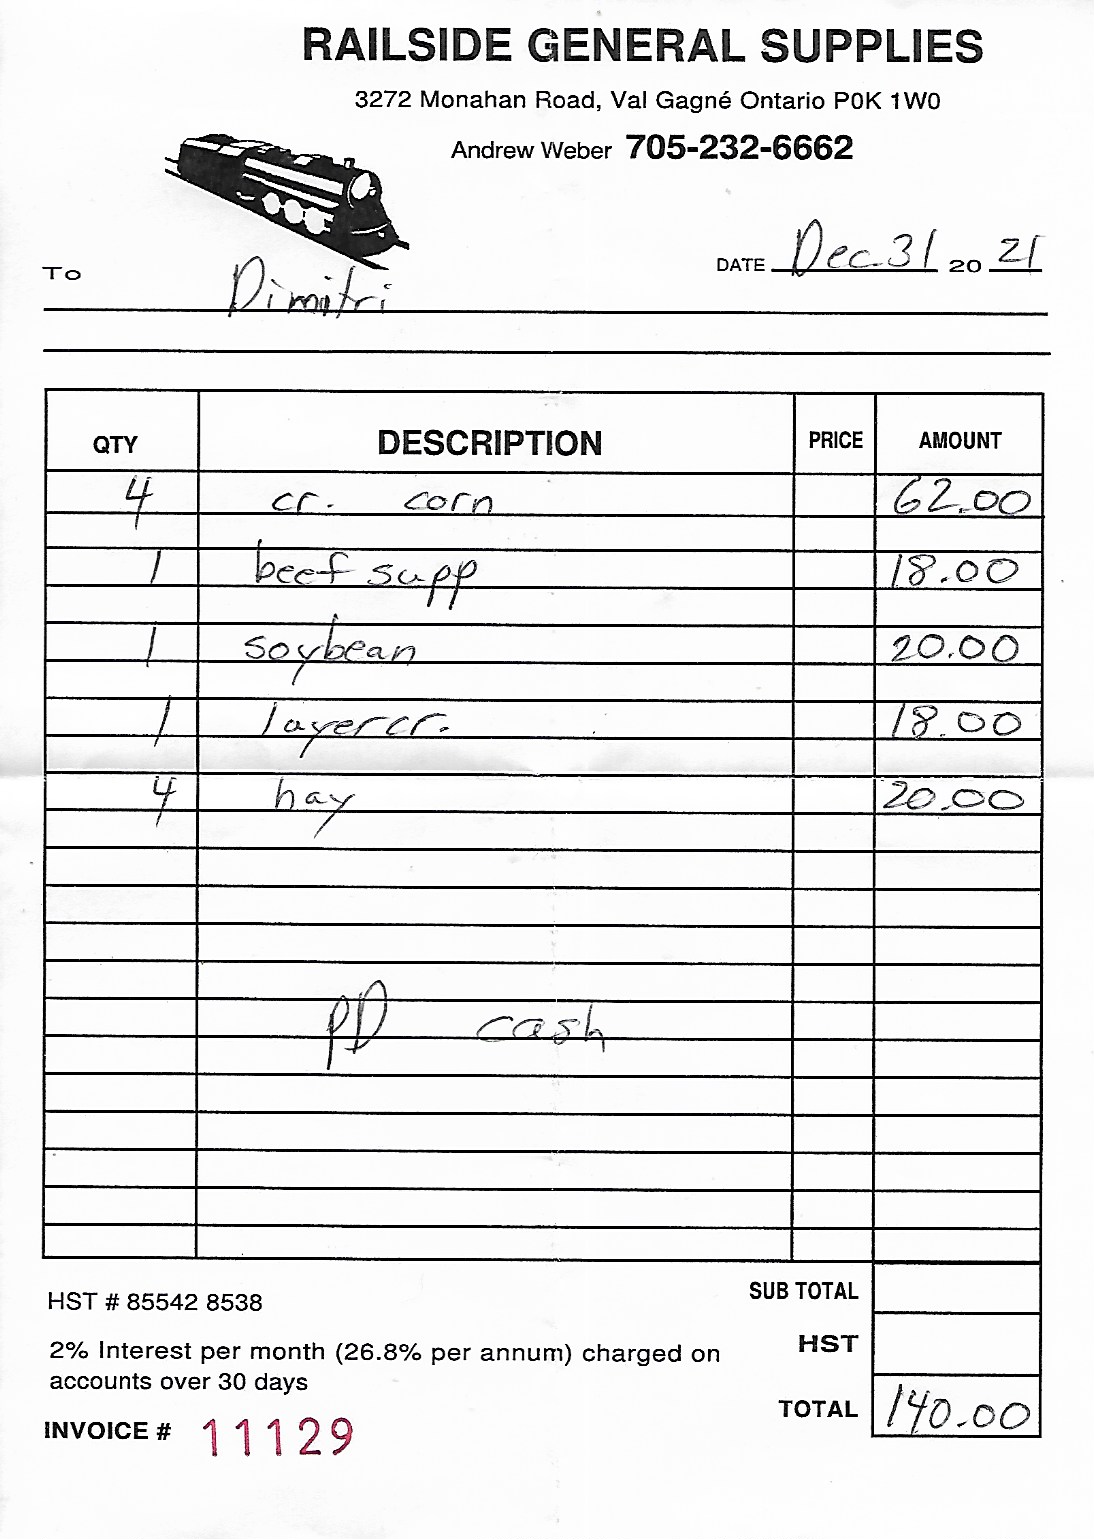 RAILSIDE GENERAL SUPPLIES
3272 Monahan Road, Val Gagné Ontario P0K 1W0
Andrew Weber 705-232-6662
DATE Dec. 31 20 21
To Dimitri
QTY DESCRIPTION PRICE AMOUNT
4 cr. corn 62.00
1 beef supp 18.00
1 soybean 20.00
1 layer cr. 18.00
4 hay 20.00
PD cash
SUB TOTAL
HST # 85542 8538
HST
2% Interest per month (26.8% per annum) charged on
accounts over 30 days
TOTAL 140.00
INVOICE # 11129